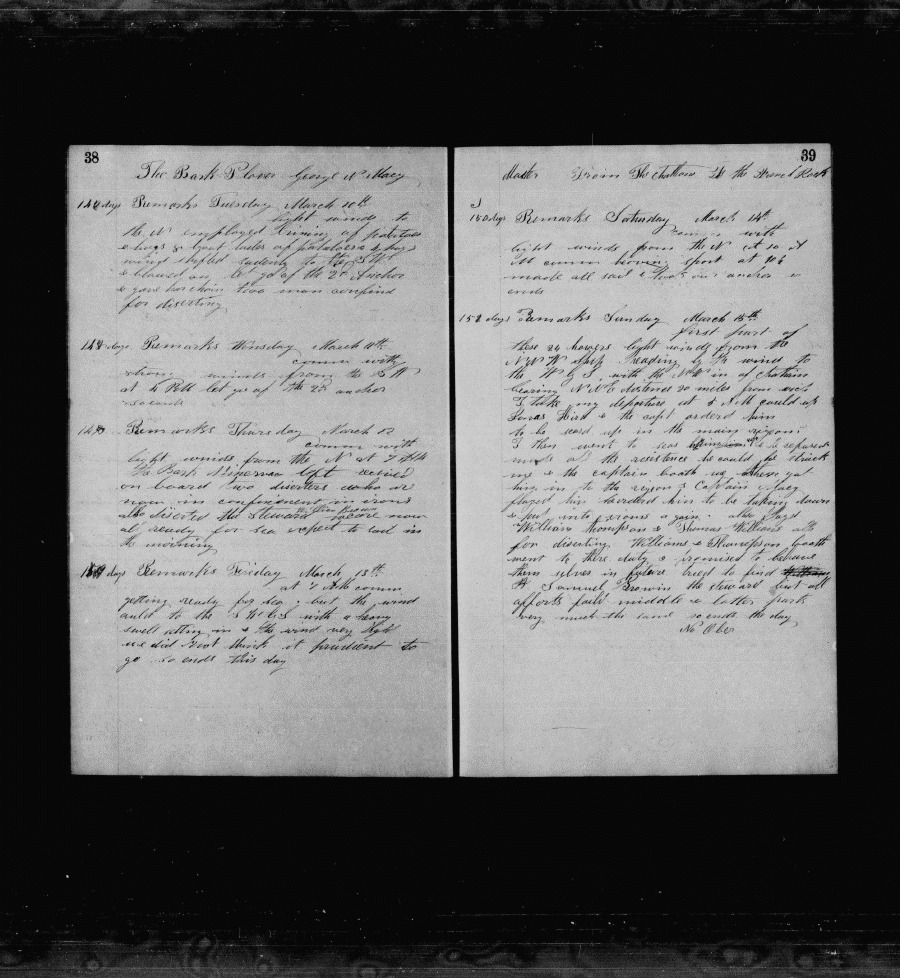 38
The Bark Plover George N Macy
days Remarks Tuesday March 10th
light winds to
the N employed triming of potatoes
& hogs & boat loads of potatoes & hogs
wind shifted sudenly to the S W
& blowed on let go of the 2d Anchor
& gave hor chain two men confind
for diserting
days Remarks Wensday March 11th
comm with
strong winds from the S W
at 4 PM let go of the 2d anchor
so ends
Remarks Thursday March 12
comm with
light winds from the N at 7 AM
The Bark left recived
on board two diserters who are
now in confinement in irons
also diserted the Steward we are now
al ready for sea expect to sail in
the morning
days Remarks Friday March 13th
at 4 AM comm
getting ready for sea, but the wind
with a heavy
swell setting in & the wind very light
we did not think it prudient to
go so ends this day
39
Master From The Chatham To the French Rock
150 days Remarks Saturday March 14th
comm with
light winds from the N at so A
AM comm hoving short at
made all sail & took our anchor so
ends
151 days Remarks Sunday March 15th
First part of
these 24 howers light winds from the
N N W Ship heading by the wind to
the W by S with the N W in of Chatham
bearing N E distence 20 miles from wich
I take my departure at 8 AM called up
& the capt orderd him
to be seasd up in the main rigon
I then went to seas him up & he refused
made all the resistence he could he struck
me & the captain boath we then got
him in to the rigon & Captain Macy
floged him & orderd him to be taking down
& put into irons a gain. also floged
William Thompson & Thomas Williams all
for diserting Williams & Thompson boath
went to there duty & promised to behave
them selves in future tried to find
Samuel Brown the steward but all
afforts faild middle & latter parts
very much the same so ends the day
No Obs